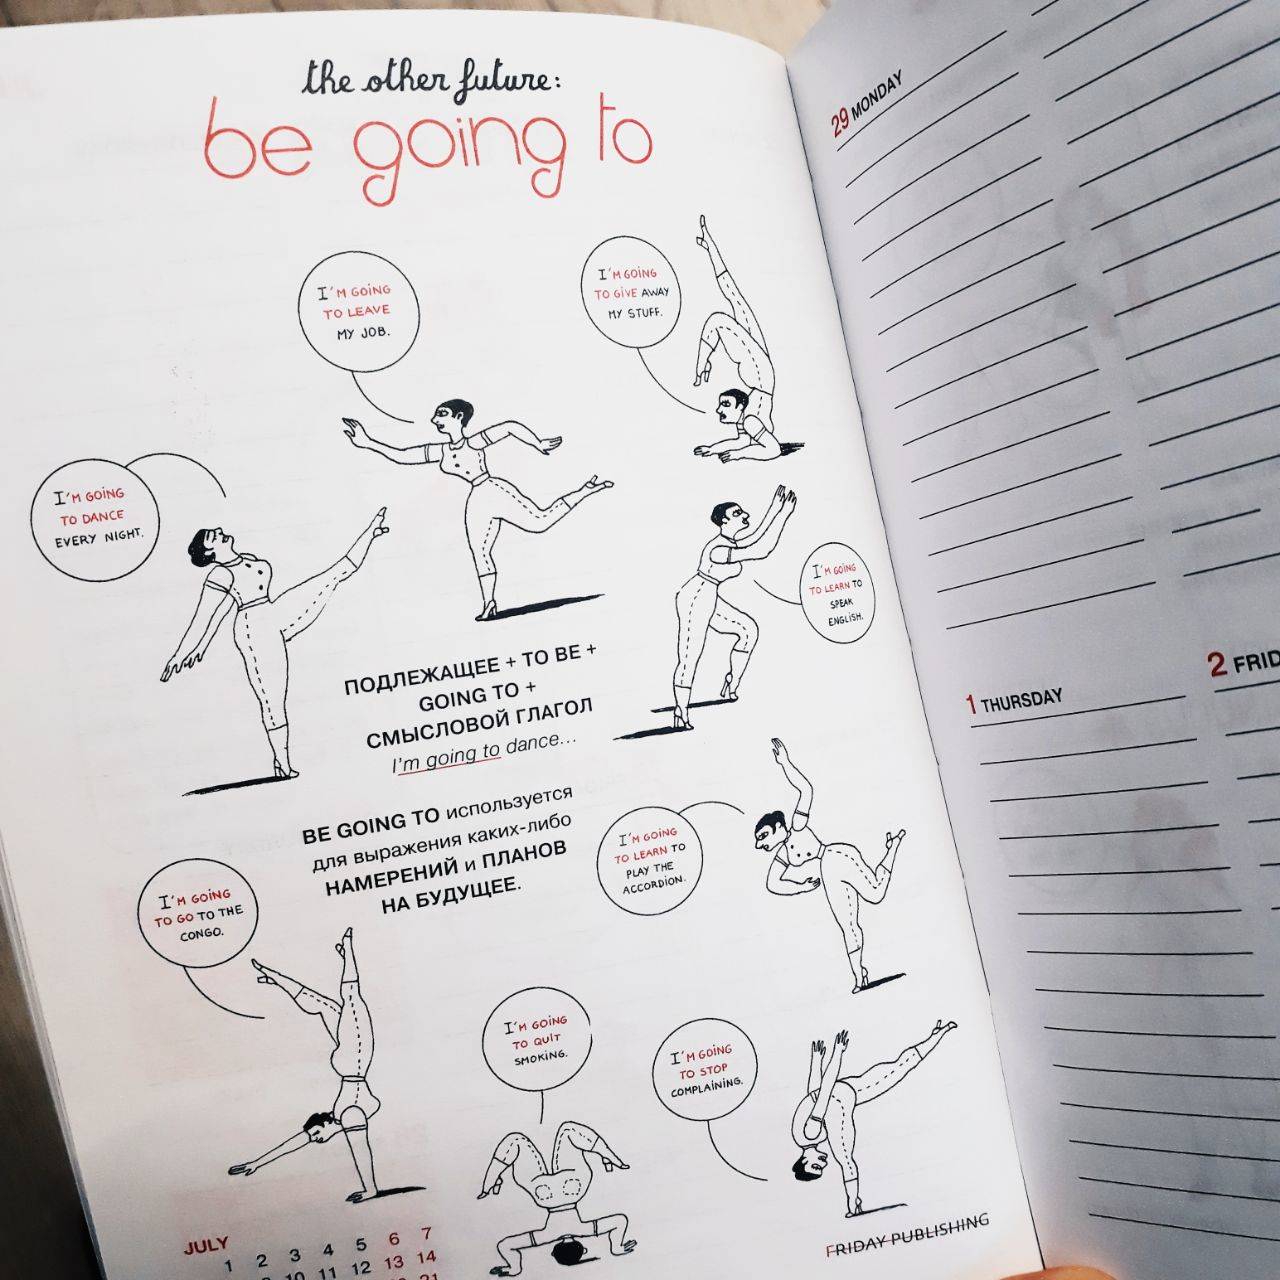 the other future:
be going to
I'M GOING
TO LEAVE
MY JOB.
I'M GOING
TO GIVE AWAY
MY STUFF.
I'M GOING
TO DANCE
EVERY NIGHT.
I'M GOING
TO LEARN TO
SPEAK
ENGLISH.
ПОДЛЕЖАЩЕЕ + TO BE +
GOING TO +
СМЫСЛОВОЙ ГЛАГОЛ
I'm going to dance...
BE GOING TO используется
для выражения каких-либо
НАМЕРЕНИЙ и ПЛАНОВ
НА БУДУЩЕЕ.
I'M GOING
TO LEARN TO
PLAY THE
ACCORDION.
I'M GOING
TO GO TO THE
CONGO.
I'M GOING
TO QUIT
SMOKING.
I'M GOING
TO STOP
COMPLAINING.
JULY
1 2 3 4 5 6 7
10 11 12 13 14
21
FRIDAY PUBLISHING
29 MONDAY
1 THURSDAY
2 FRID